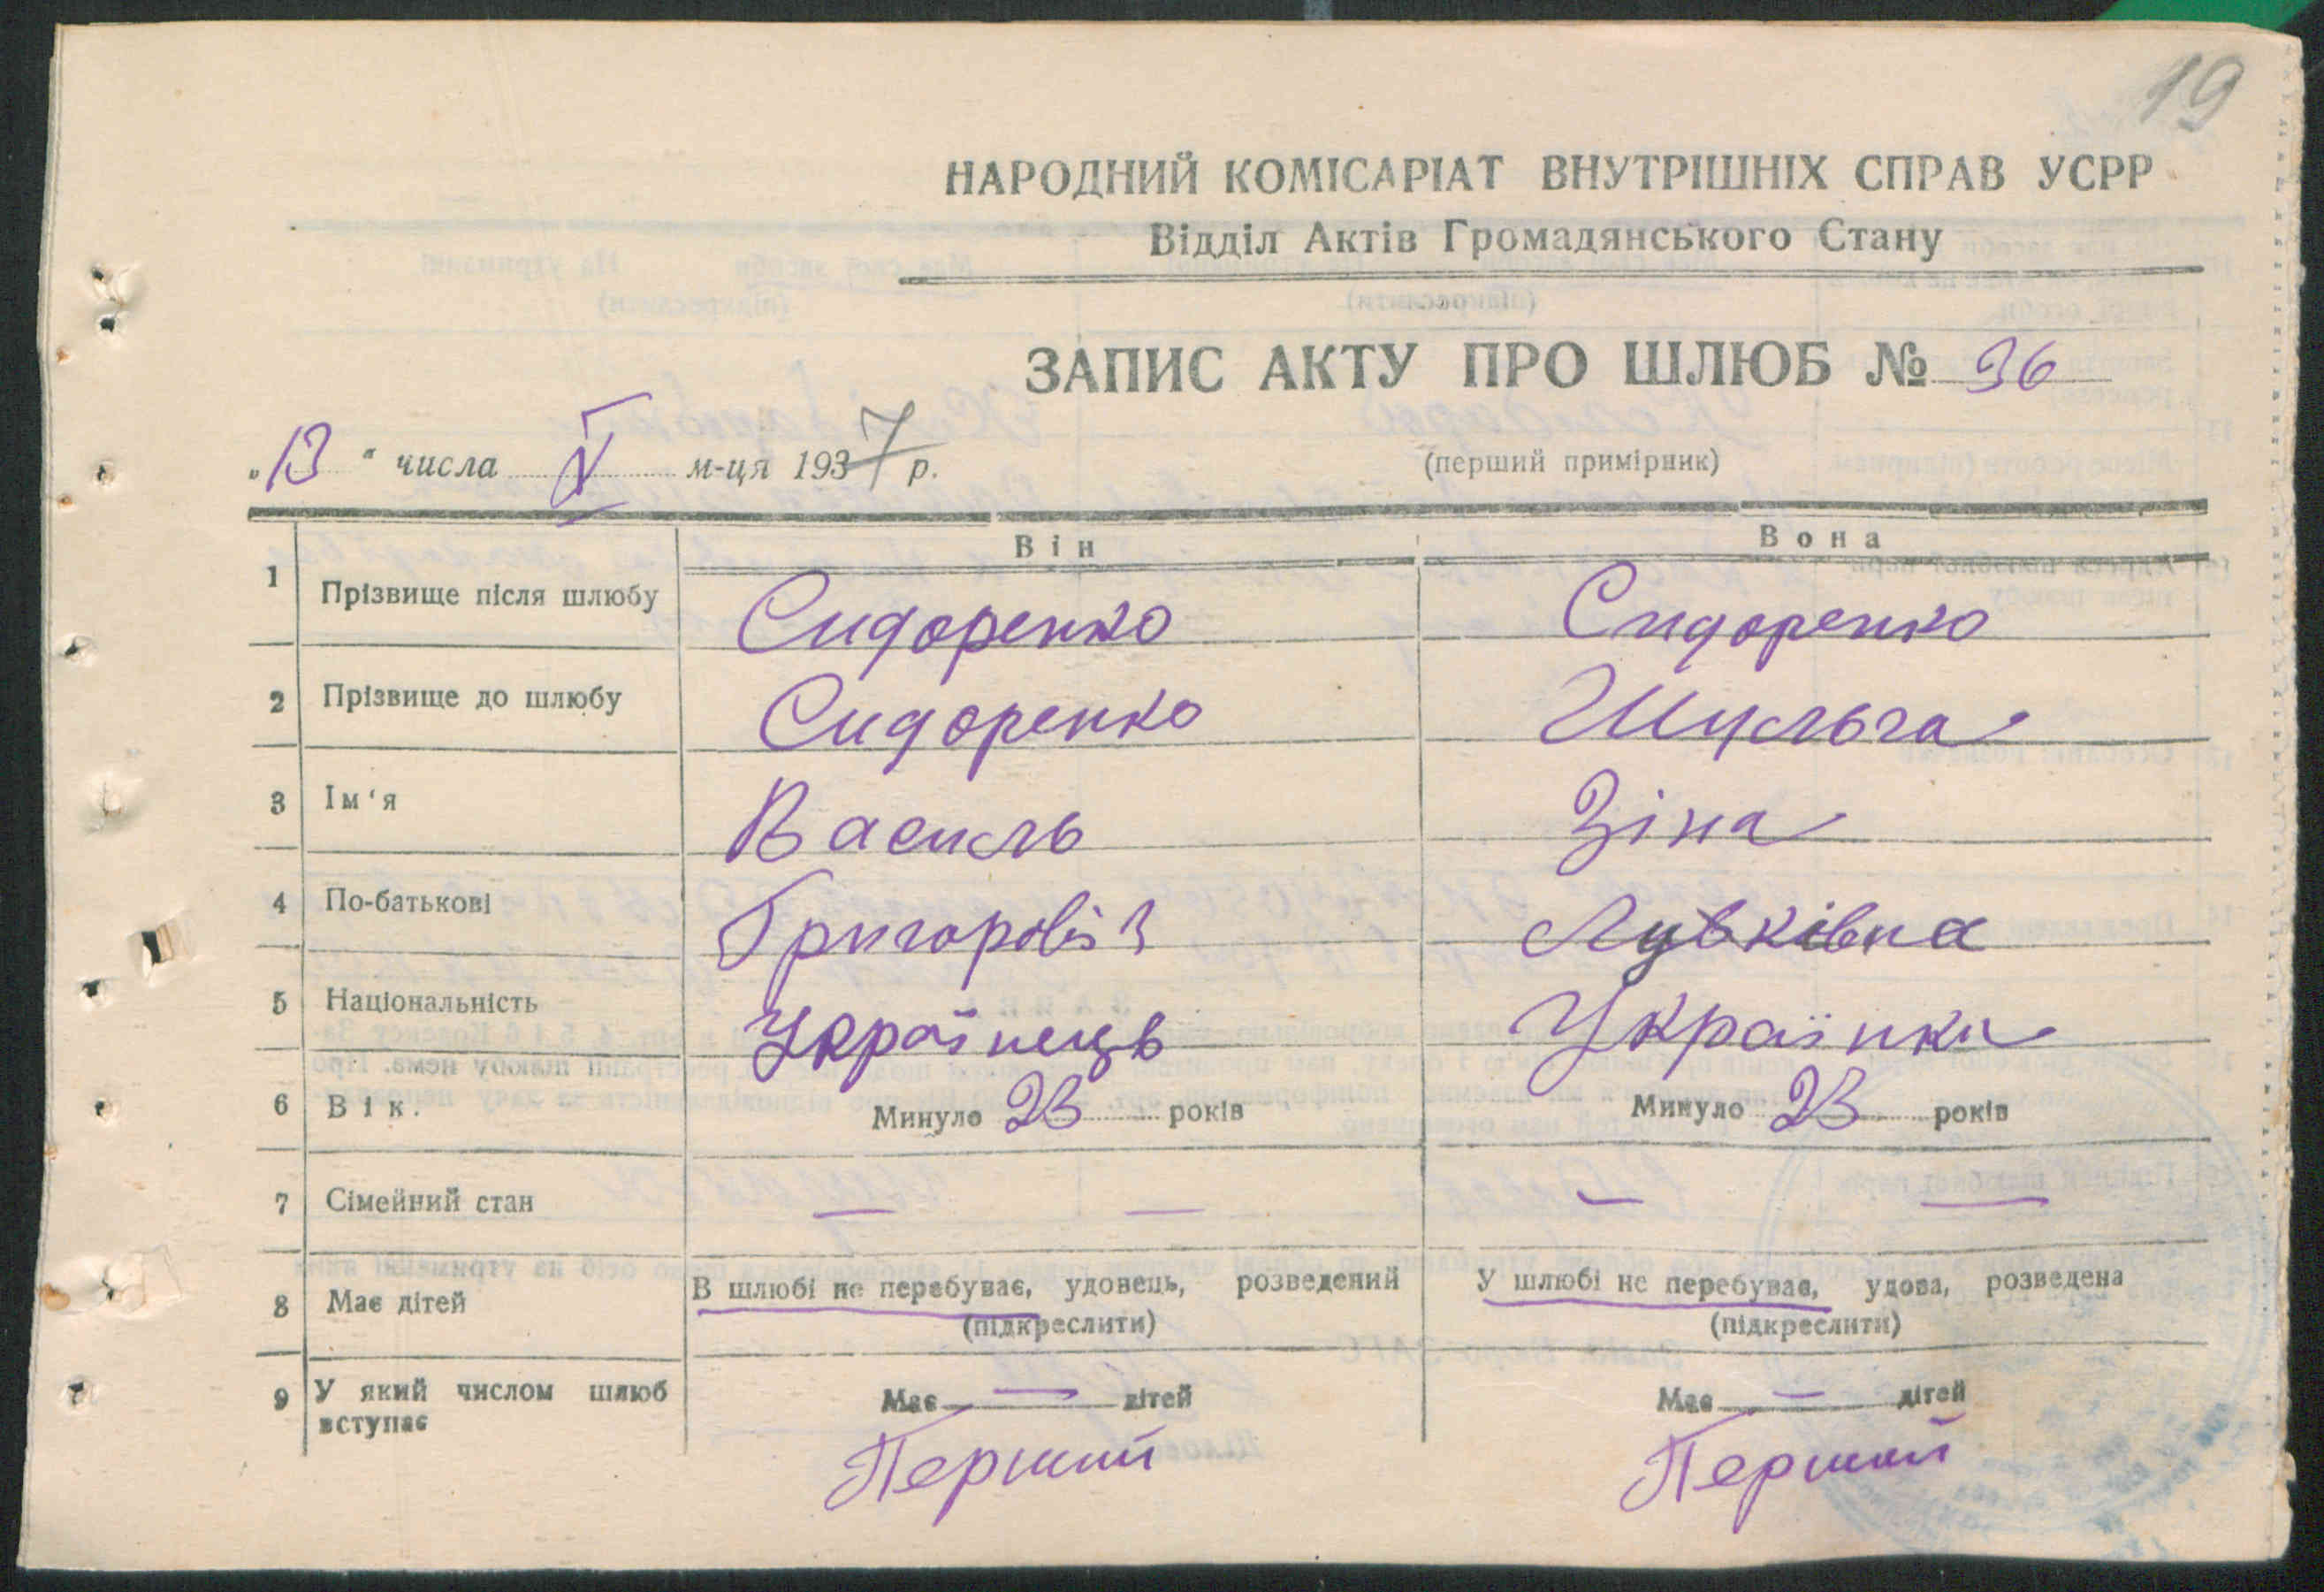 19
НАРОДНИЙ КОМІСАРІАТ ВНУТРІШНІХ СПРАВ УСРР
Відділ Актів Громадянського Стану
ЗАПИС АКТУ ПРО ШЛЮБ № 36
„13“ числа V м-ця 1937 р.
(перший примірник)
Він Вона
1 Прізвище після шлюбу Сидоренко Сидоренко
2 Прізвище до шлюбу Сидоренко Шульга
3 Ім'я Василь Зіна
4 По-батькові Григоровіч Луьківна
5 Національність Українець Українка
6 Вік. Минуло 23 років Минуло 23 років
7 Сімейний стан — — — —
8 Має дітей В шлюбі не перебуває, удовець, розведений У шлюбі не перебуває, удова, розведена
(підкреслити) (підкреслити)
9 У який числом шлюб вступає Має — дітей Має — дітей
Перший Перший